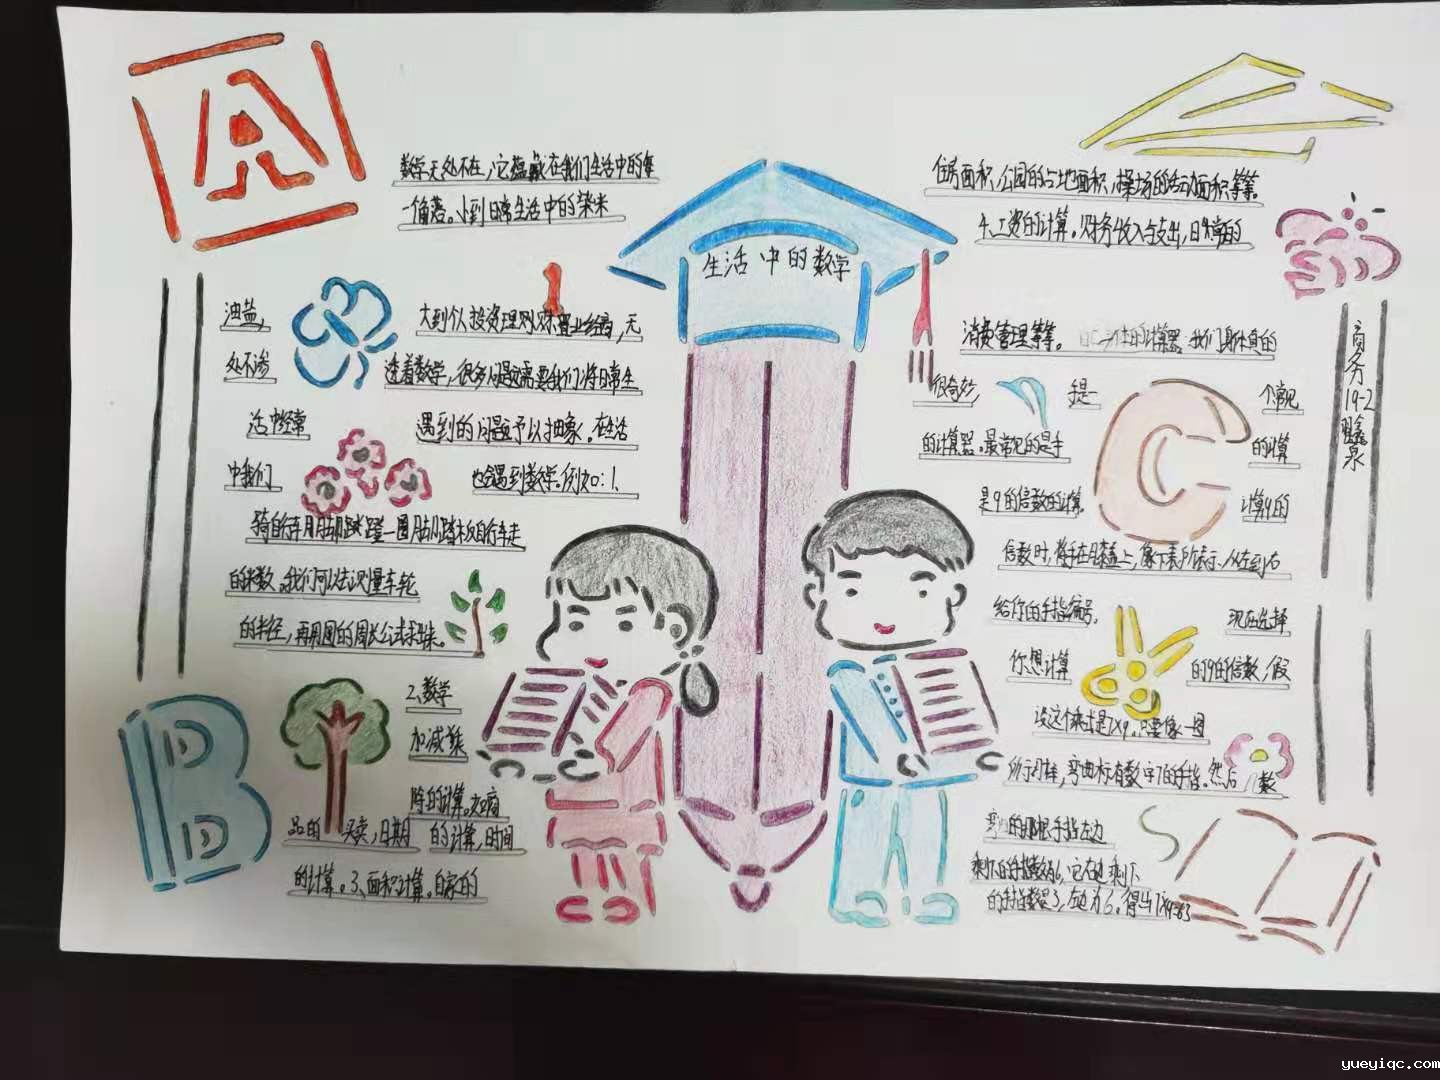 A
数学无处不在,它蕴藏在我们生活中的每
一角落。小到日常生活中的柴米
油盐,
大到个人投资理财以及置业经商,无
处不渗
透着数学,很多问题需要我们将日常生
活中经常
遇到的问题予以抽象。在生活
中我们
也会遇到数学。例如:1、
骑自行车用脚踏蹬一圈用脚踏板自行车走
的米数。我们可以去测量车轮
的半径,再用圆的周长公式
B
2、数学
加减乘
除的计算。如商
品的
买卖,日期
的计算,时间
的计算。3、面积计算。自家的
生活中的数学
住房面积,公园的占地面积,操场的活动面积等等。
4、工资的计算。财务收入与支出,日常的
消费管理等等。
的计算器。我们身体真的
很奇妙,
手是一
个常见
的计算器。最常见的是手
的计算
C
是9的倍数的计算。
计算9的
倍数时,将手放在膝盖上,像下表所示,从左到右
给你的手指编号。
现在选择
你想计算
的9的倍数,假
设这个乘法是7X9。只要像一图
所示那样,弯曲标有数字7的手指。然后
数
的那根手指左边
剩下的手指数是6,它右边剩下
的手指数是3,左边为6。得出7X9=63
商务
19-2
yueyiqc.com